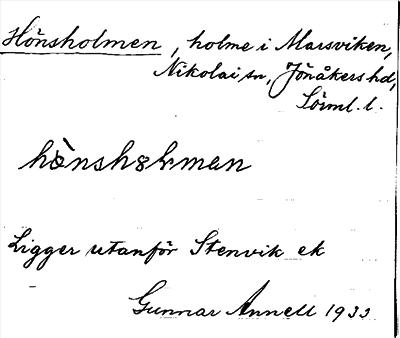 Hönsholmen, holme i Marsviken,
Nikolai sn, Jönåkers hd,
Sörml. l.
Ligger utanför Stenvik ek
Gunnar Annell 1933